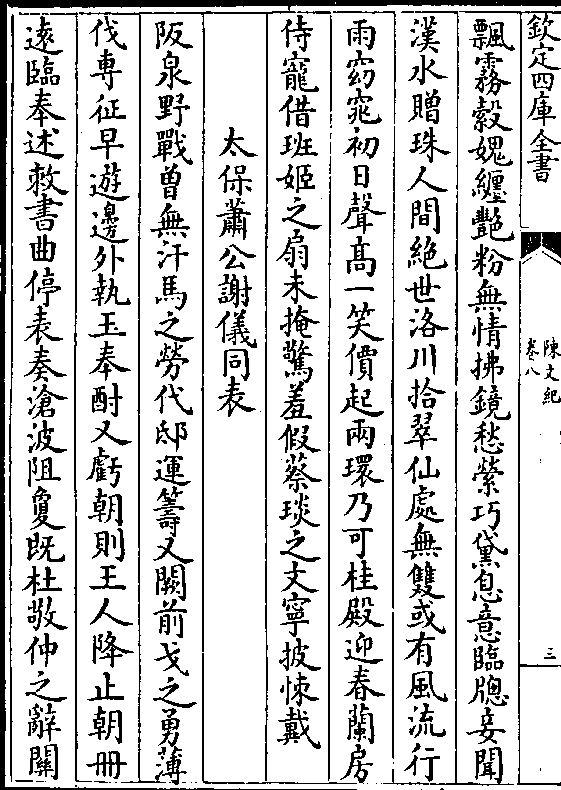 欽定四庫全書
陳文紀
卷八
三
飄霧縠媿纏艷粉無情拂鏡愁縈巧黛息意臨牕妾聞
漢水贈珠人間絶世洛川拾翠仙處無雙或有風流行
雨窈窕初日聲髙一笑價起兩環乃可桂殿迎春蘭房
侍寵借班姬之扇未掩驚羞假蔡琰之文寧披悚戴
太保蕭公謝儀同表
阪泉野戰曽無汗馬之勞代邸運籌又闕前戈之勇薄
伐専征早遊邊外執玉奉酎又虧朝則王人降止朝冊
逺臨奉述敕書曲停表奏滄波阻夐既杜敬仲之辭關